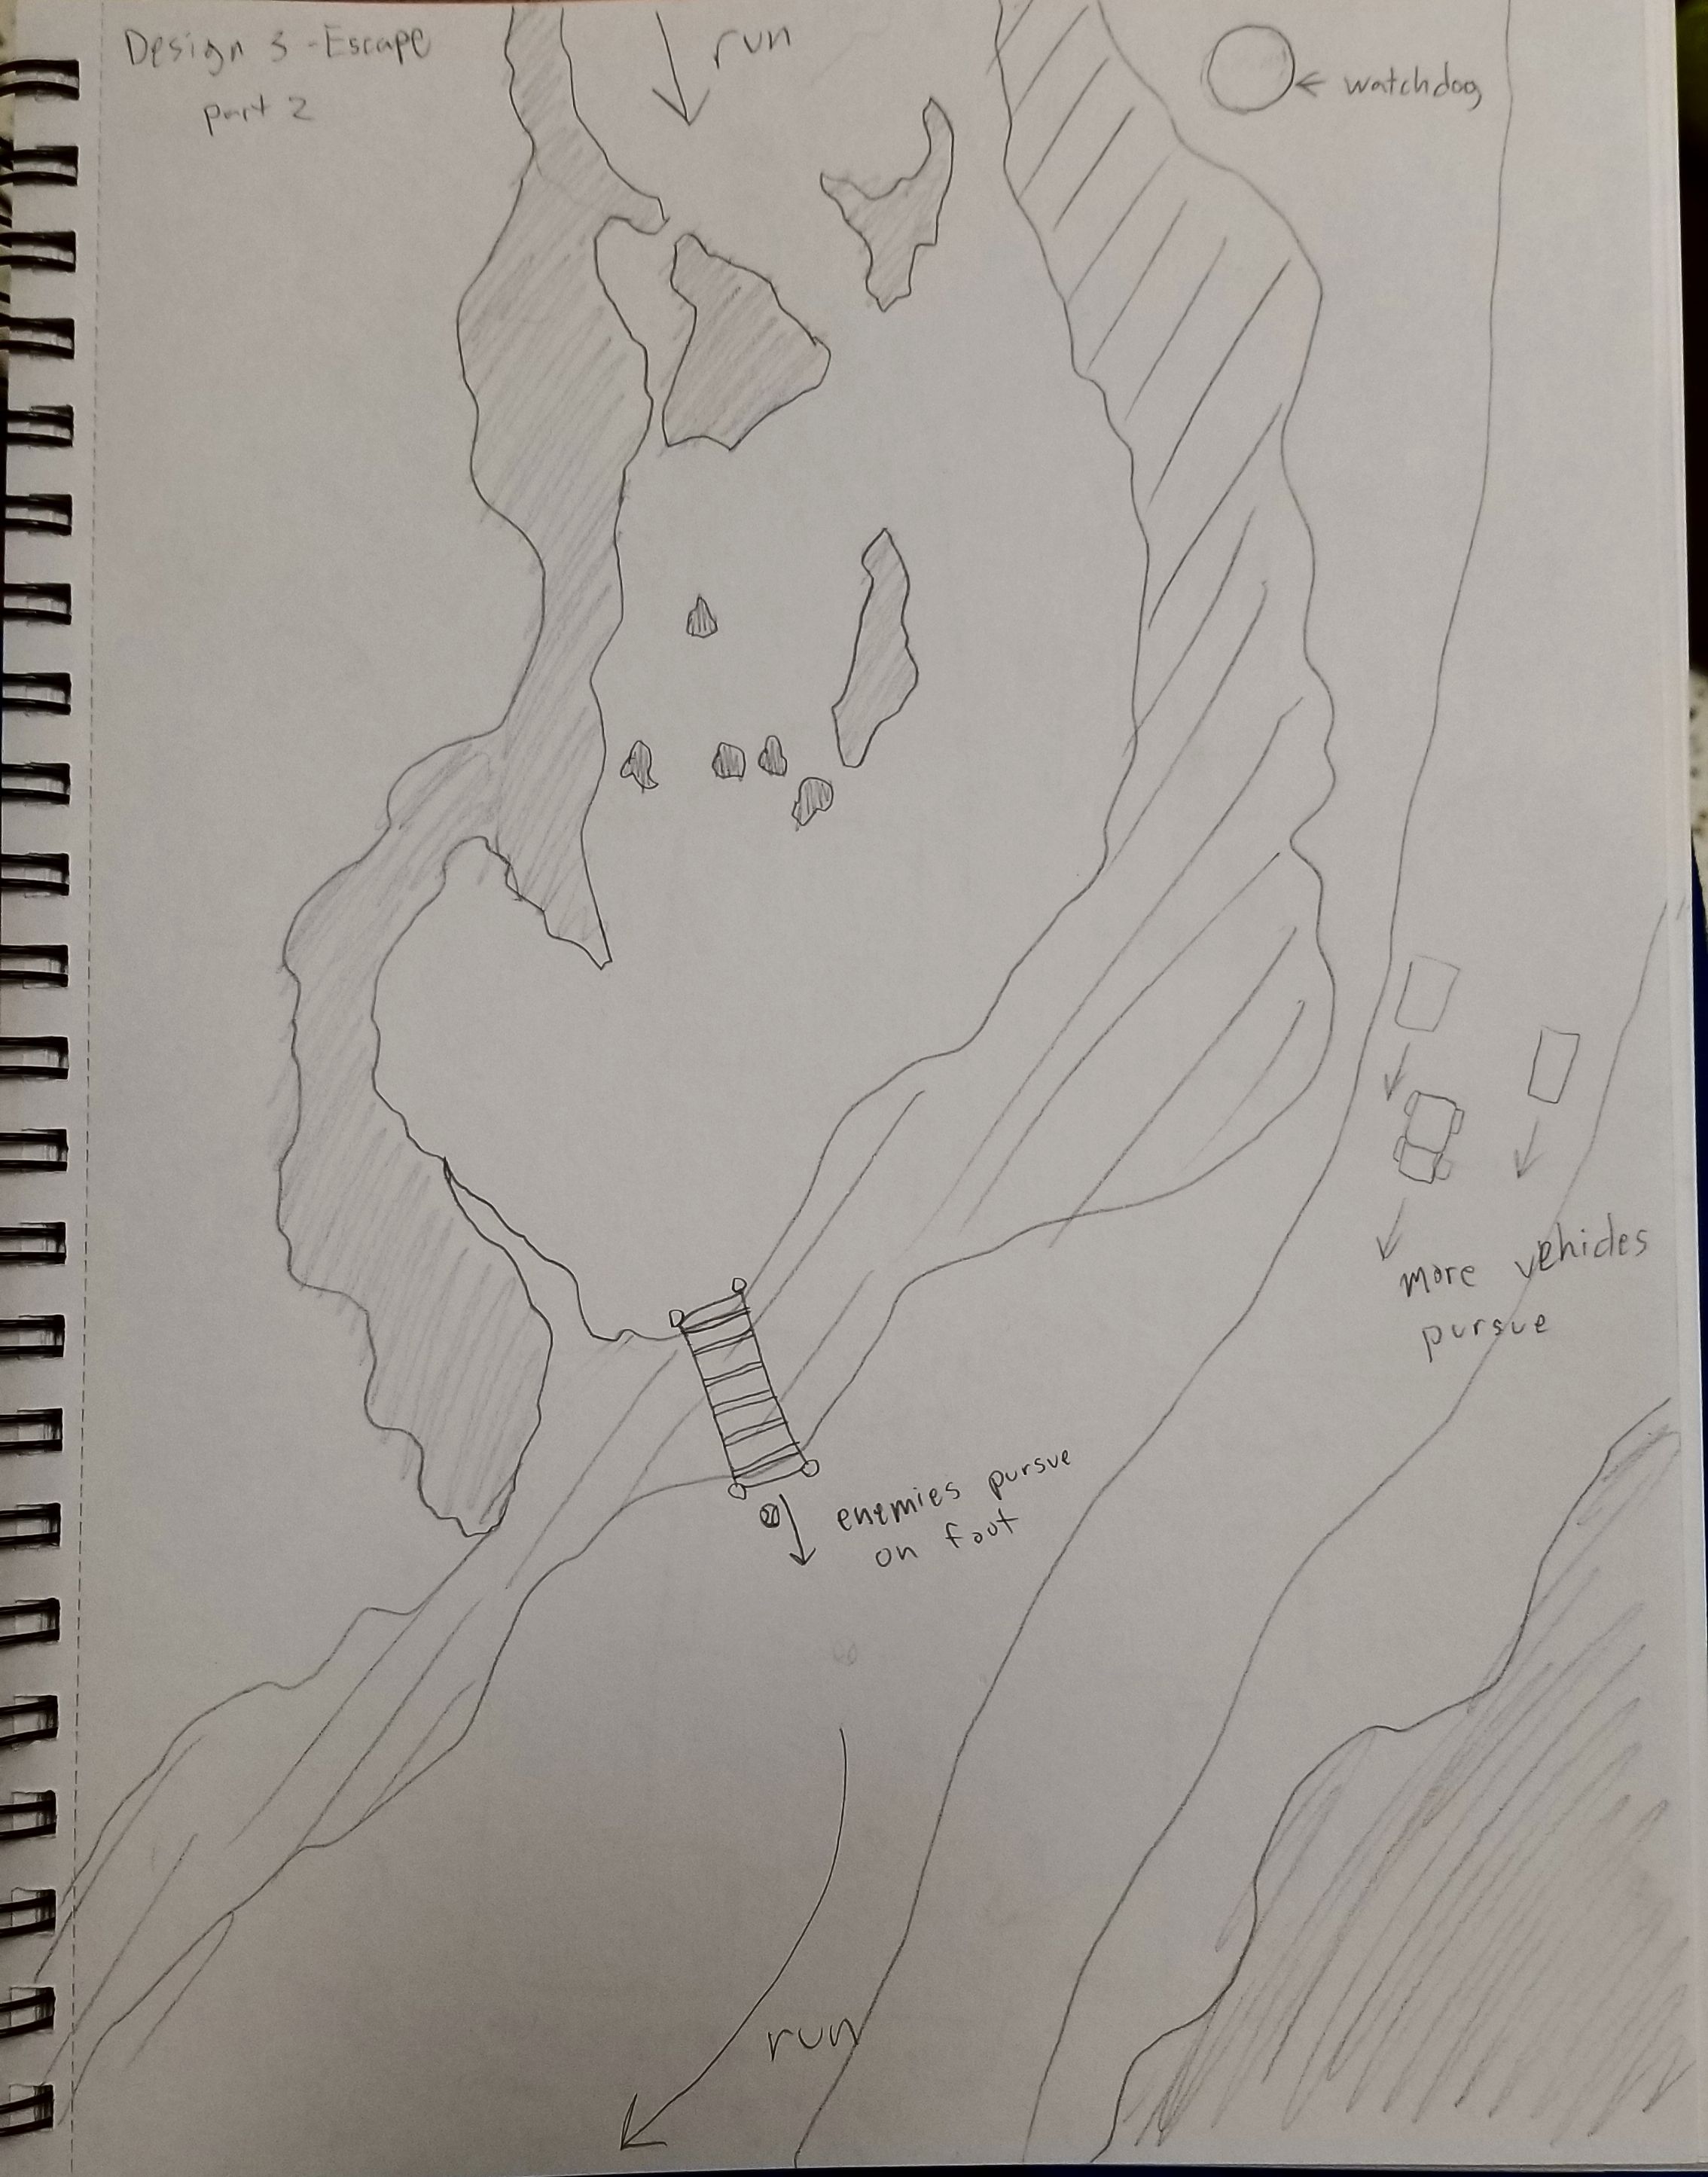 Design 3 - Escape
part 2
run
watchdog
more vehicles
pursue
enemies pursue
on foot
run